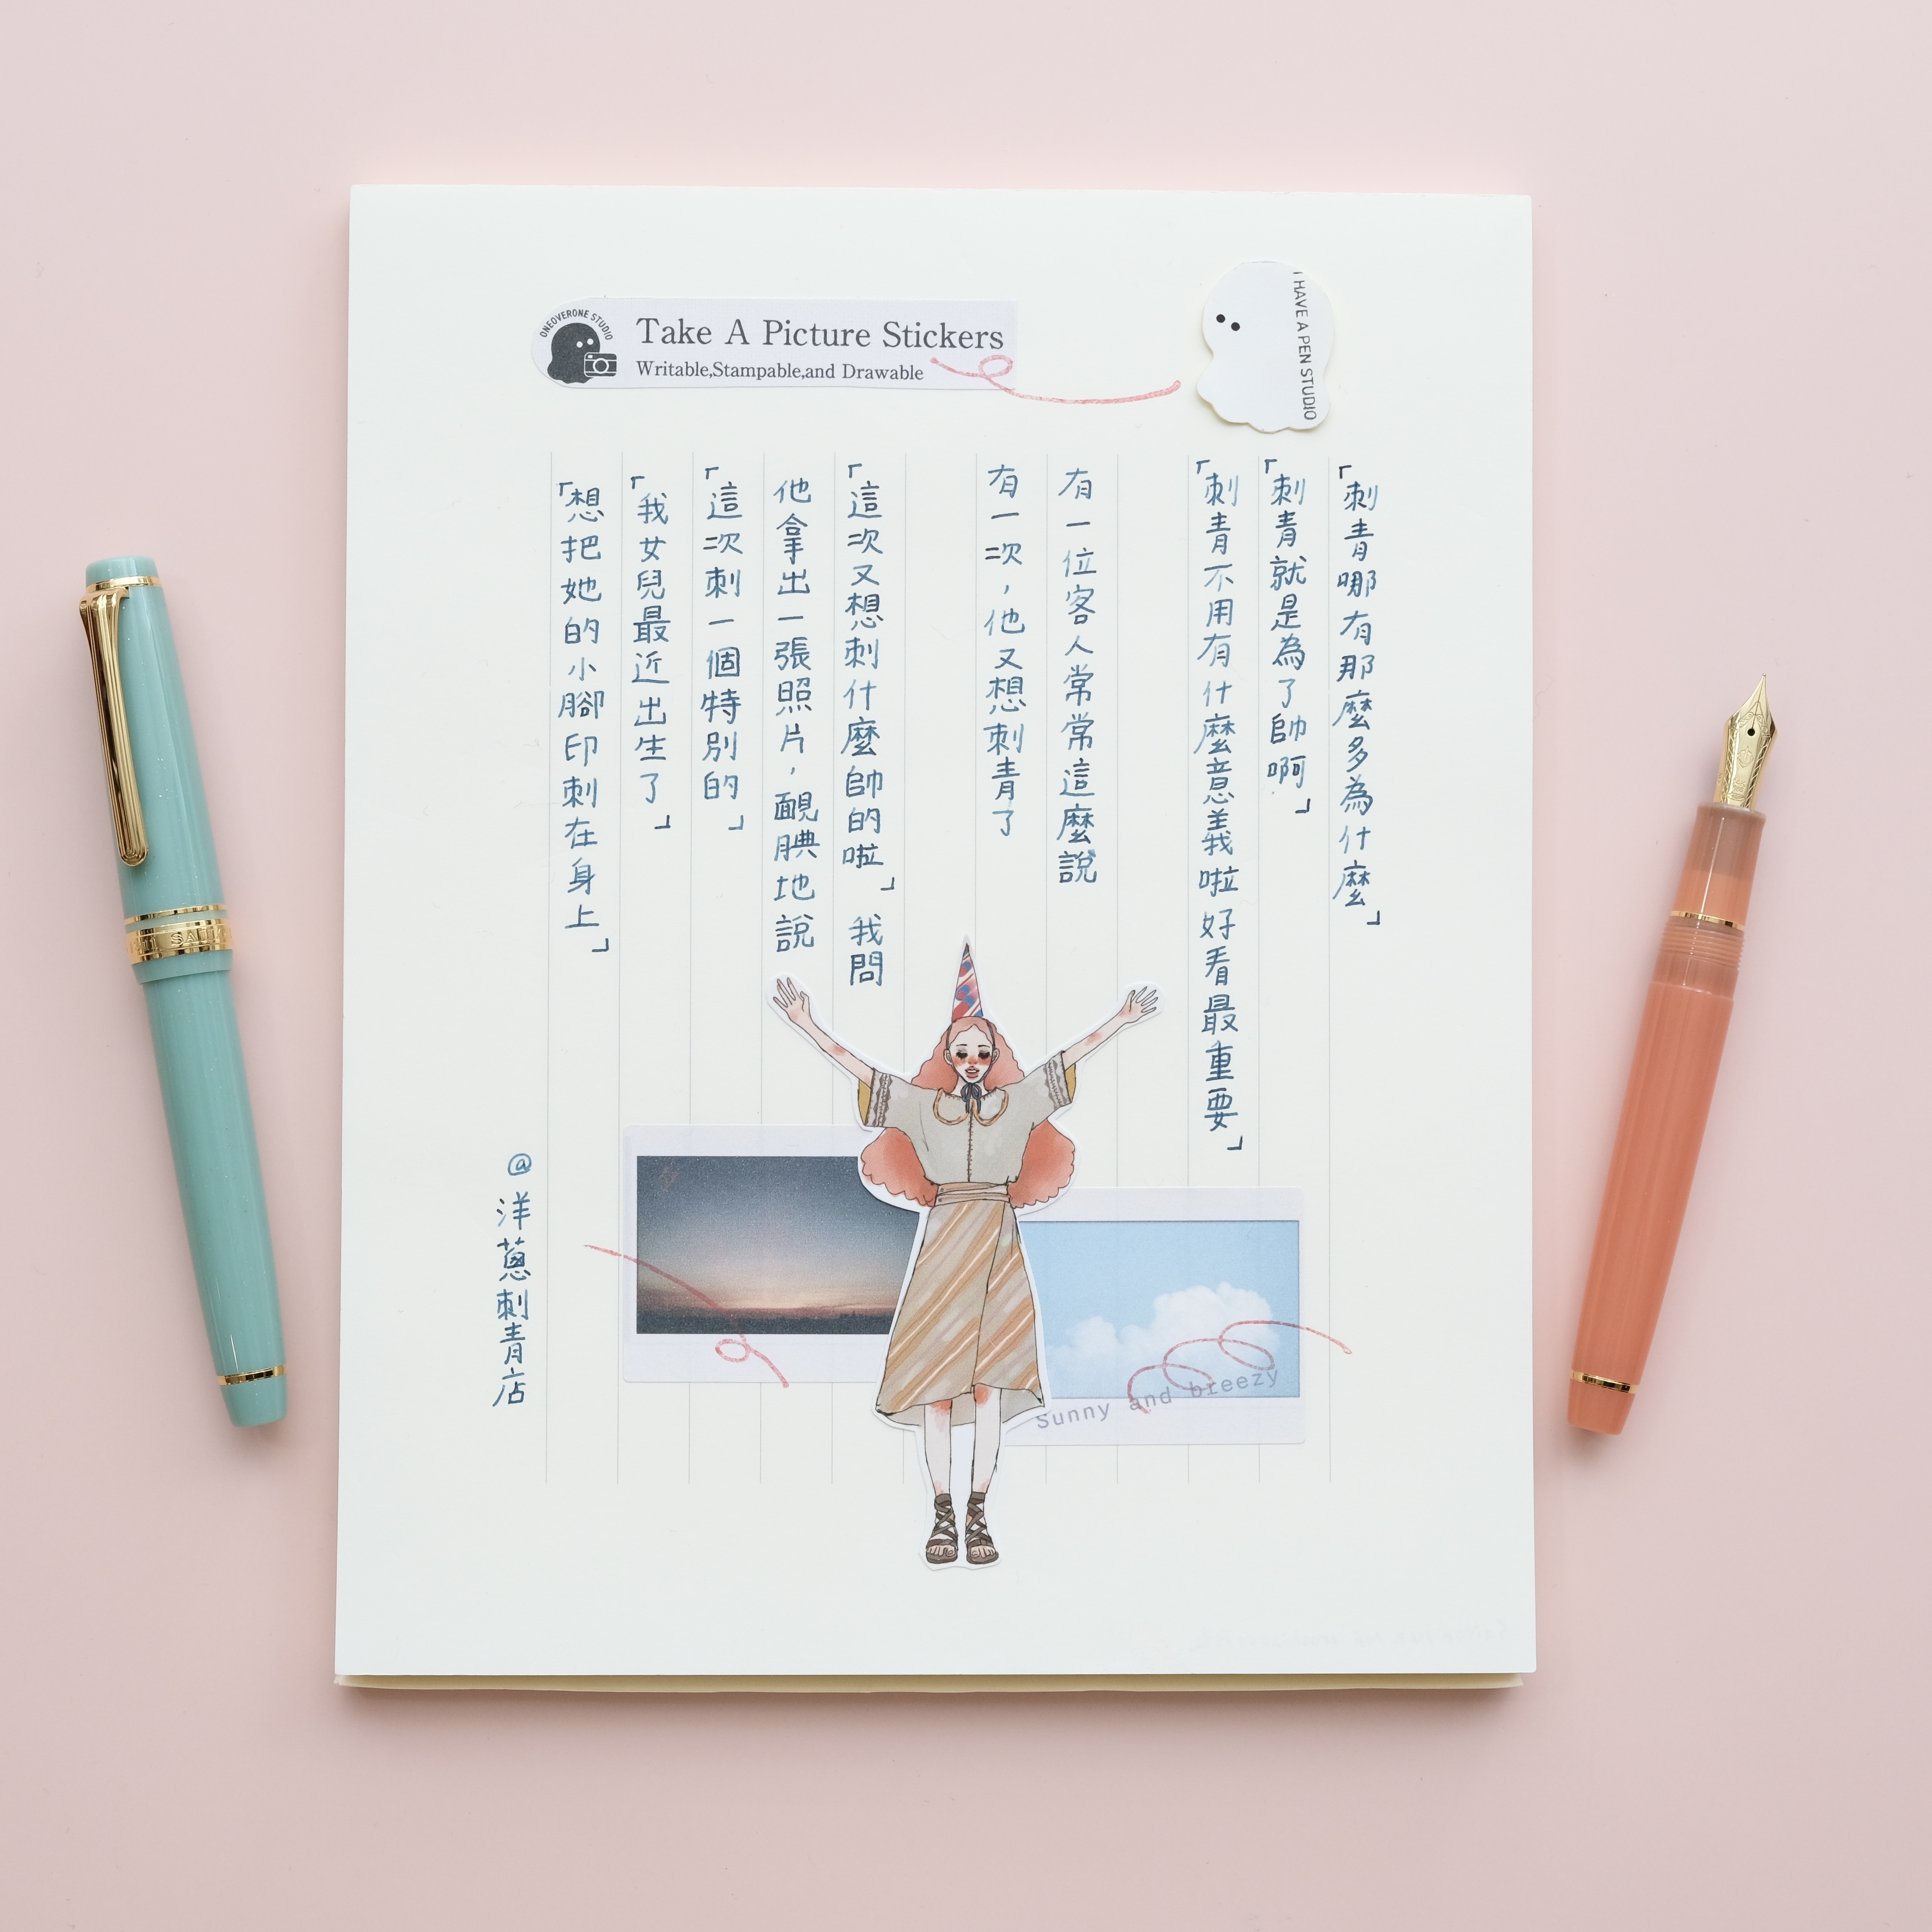 ONEOVERONE STUDIO
Take A Picture Stickers
Writable,Stampable,and Drawable
I HAVE A PEN STUDIO
「刺青哪有那麼多為什麼」
「刺青就是為了帥啊」
「刺青不用有什麼意義啦好看最重要」
有一位客人常常這麼說
有一次，他又想刺青了
「這次又想刺什麼帥的啦」我問
他拿出一張照片，靦腆地說
「這次刺一個特別的」
「我女兒最近出生了」
「想把她的小腳印刺在身上」
@洋蔥刺青店
Sunny and breezy